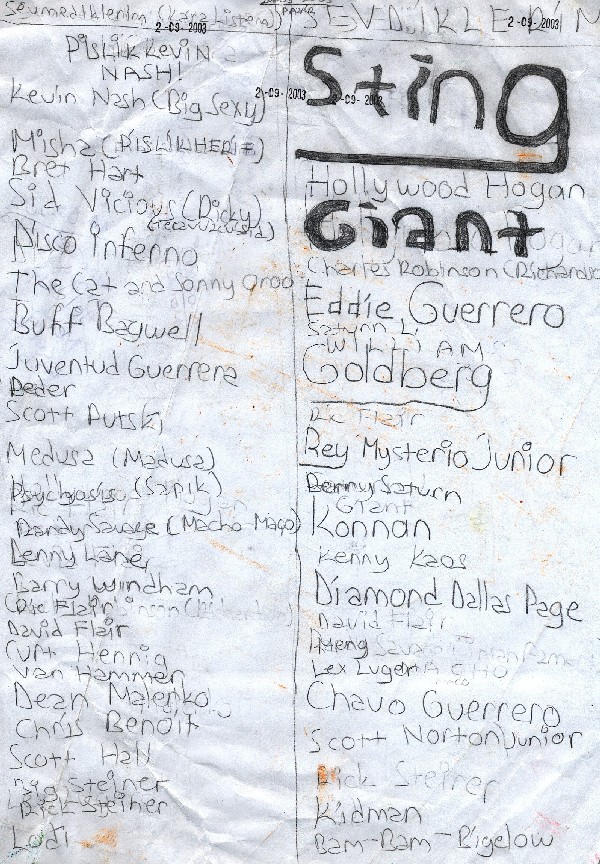 Sevmediklerim (Kara Listem)
2-09-2003
PİSLİK KEVIN
NASH!
Kevin Nash (Big Sexy)
Misha (PİSLİK HERİF)
Bret Hart
Sid Vicious (Dicky)
(tecavuzcusta)
Disco inferno
The Cat and Sonny onoo
Buff Bagwell
Juventud Guerrera
Scott Putski
Medusa (Madusa)
(Sapık)
Randy Savage (Macho Maço)
Lenny Lane
Barry Windham
David Flair
Curt Hennig
Van Hammer
Dean Malenko
Chris Benoit
Scott Hall
Big Steiner
Rick Steiner
Lodi
SEVDİKLERİM
2-09-2003
2-09-2003
2-09-2003
Sting
Hollywood Hogan
Giant
Charles Robinson
Eddie Guerrero
Saturn
WILLIAM
Goldberg
Ric Flair
Rey Mysterio Junior
Perry Saturn
Giant
Konnan
Kenny Kaos
Diamond Dallas Page
David Flair
Meng
Lex Luger
Chavo Guerrero
Scott Norton Junior
Rick Steiner
Kidman
Bam-Bam-Bigelow